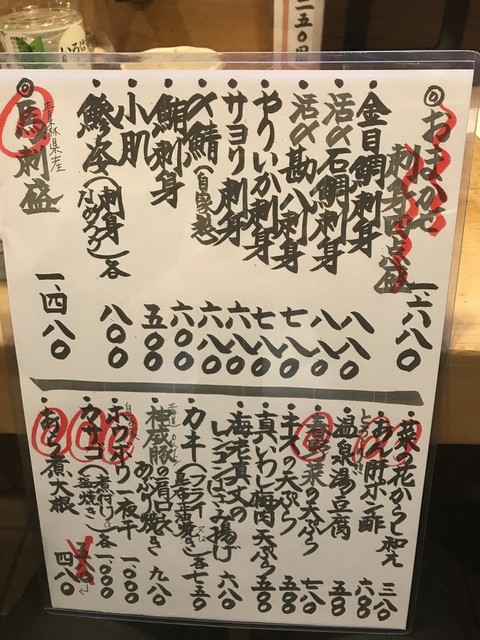 二五〇円
◎おまかせ
刺身四点盛 一、六八〇
・金目鯛刺身 八八〇
・活〆石鯛刺身 八八〇
・活〆勘八刺身 七八〇
・やりいか刺身 七八〇
・サヨリ刺身 六八〇
・〆鯖(自家製) 六八〇
・鮪刺身 六〇〇
・小肌 五〇〇
・鯵(刺身 なめろう)各 八〇〇
◎馬刺盛 一、四八〇
青森県産
・菜の花からし和え 三八〇
・あん肝ポン酢 六〇〇
・温泉湯豆腐 五八〇
の天ぷら 七八〇
・キスの天ぷら 五八〇
・真いわし梅肉天ぷら 五八〇
・海老真丈の
レンコンはさみ揚げ 六八〇
・カキ(フライ 各七五〇
・神威豚の肩ロース
あぶり焼き 九八〇
・ホウボウ一夜干 一、〇〇〇
・カサゴ(煮付け 塩焼き)各 一、〇〇〇
・あら煮大根 四八〇